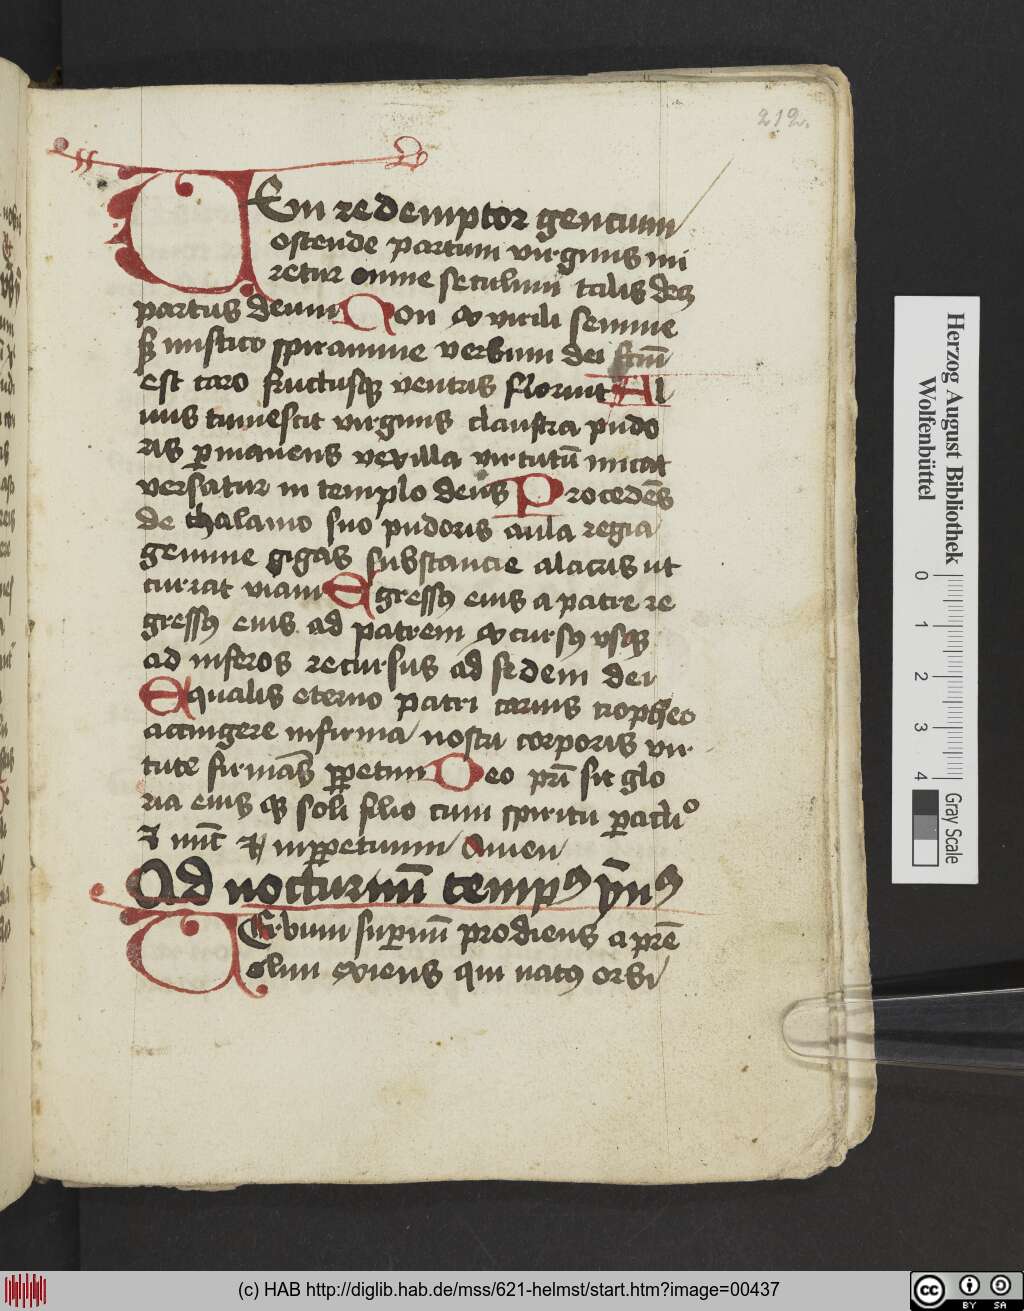 212.
Veni redemptor gencium
ostende partum virginis mi
retur omne seculum talis decꝫ
partus deum Non ex virili semine
sꝫ mistico spiramine verbum dei
est caro fructusqꝫ ventris floruit Al
uus tumescit virginis claustra pudo
ris ꝑmanens vexilla virtutū micat
versatur in templo deus Procedēs
de thalamo suo pudoris aula regia
gemine gigas substancie alacris ut
currat viam Egressꝰ eius a patre re
gressꝰ eius ad patrem excursꝰ vsqꝫ
ad inferos recursus ad sedem dei
Equalis eterno patri carnis tropheo
accingere infirma nostri corporis vir
tute firmās ꝑpetim Deo pri͂ sit glo
ria eiusqꝫ soli filio cum spiritu ꝑaclito
⁊ nūc ⁊ in ꝑpetuum Amen
Ad nocturnū tempꝰ ymnꝰ
Verbum suꝑnū prodiens a prē
olim exiens qui natꝰ orbi
Herzog August Bibliothek
Wolfenbüttel
0 1 2 3 4
Gray Scale
(c) HAB http://diglib.hab.de/mss/621-helmst/start.htm?image=00437
cc BY SA